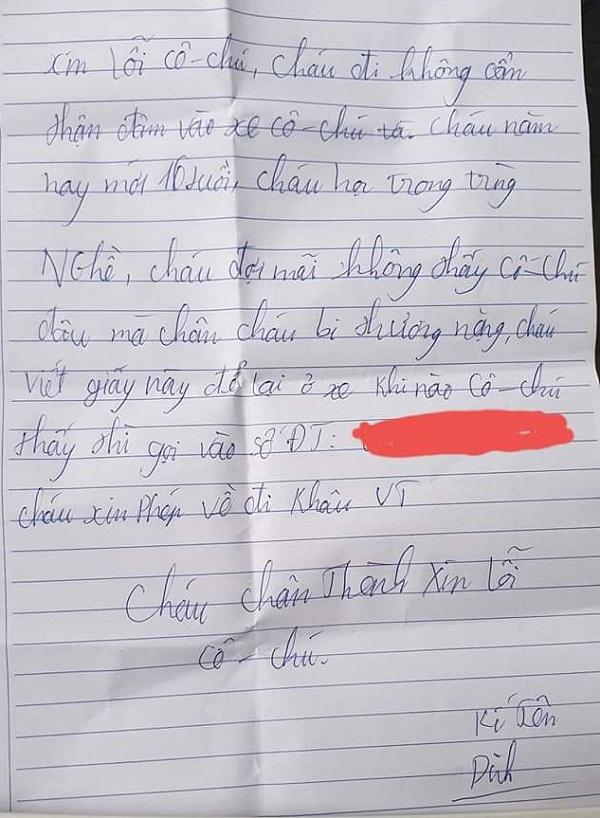 xin lỗi cô-chú, cháu đi không cẩn
thận đâm vào xe cô-chú cháu năm
nay mới 16 tuổi, cháu học trong trường
NGhề, cháu đợi mãi không thấy cô-chú
đâu mà chân cháu bị thương nặng, cháu
viết giấy này để lại ở xe khi nào cô-chú
thấy thì gọi vào số ĐT:
cháu xin phép về đi khâu VT
Cháu chân Thành xin lỗi
cô-chú.
Kí Tên
Định